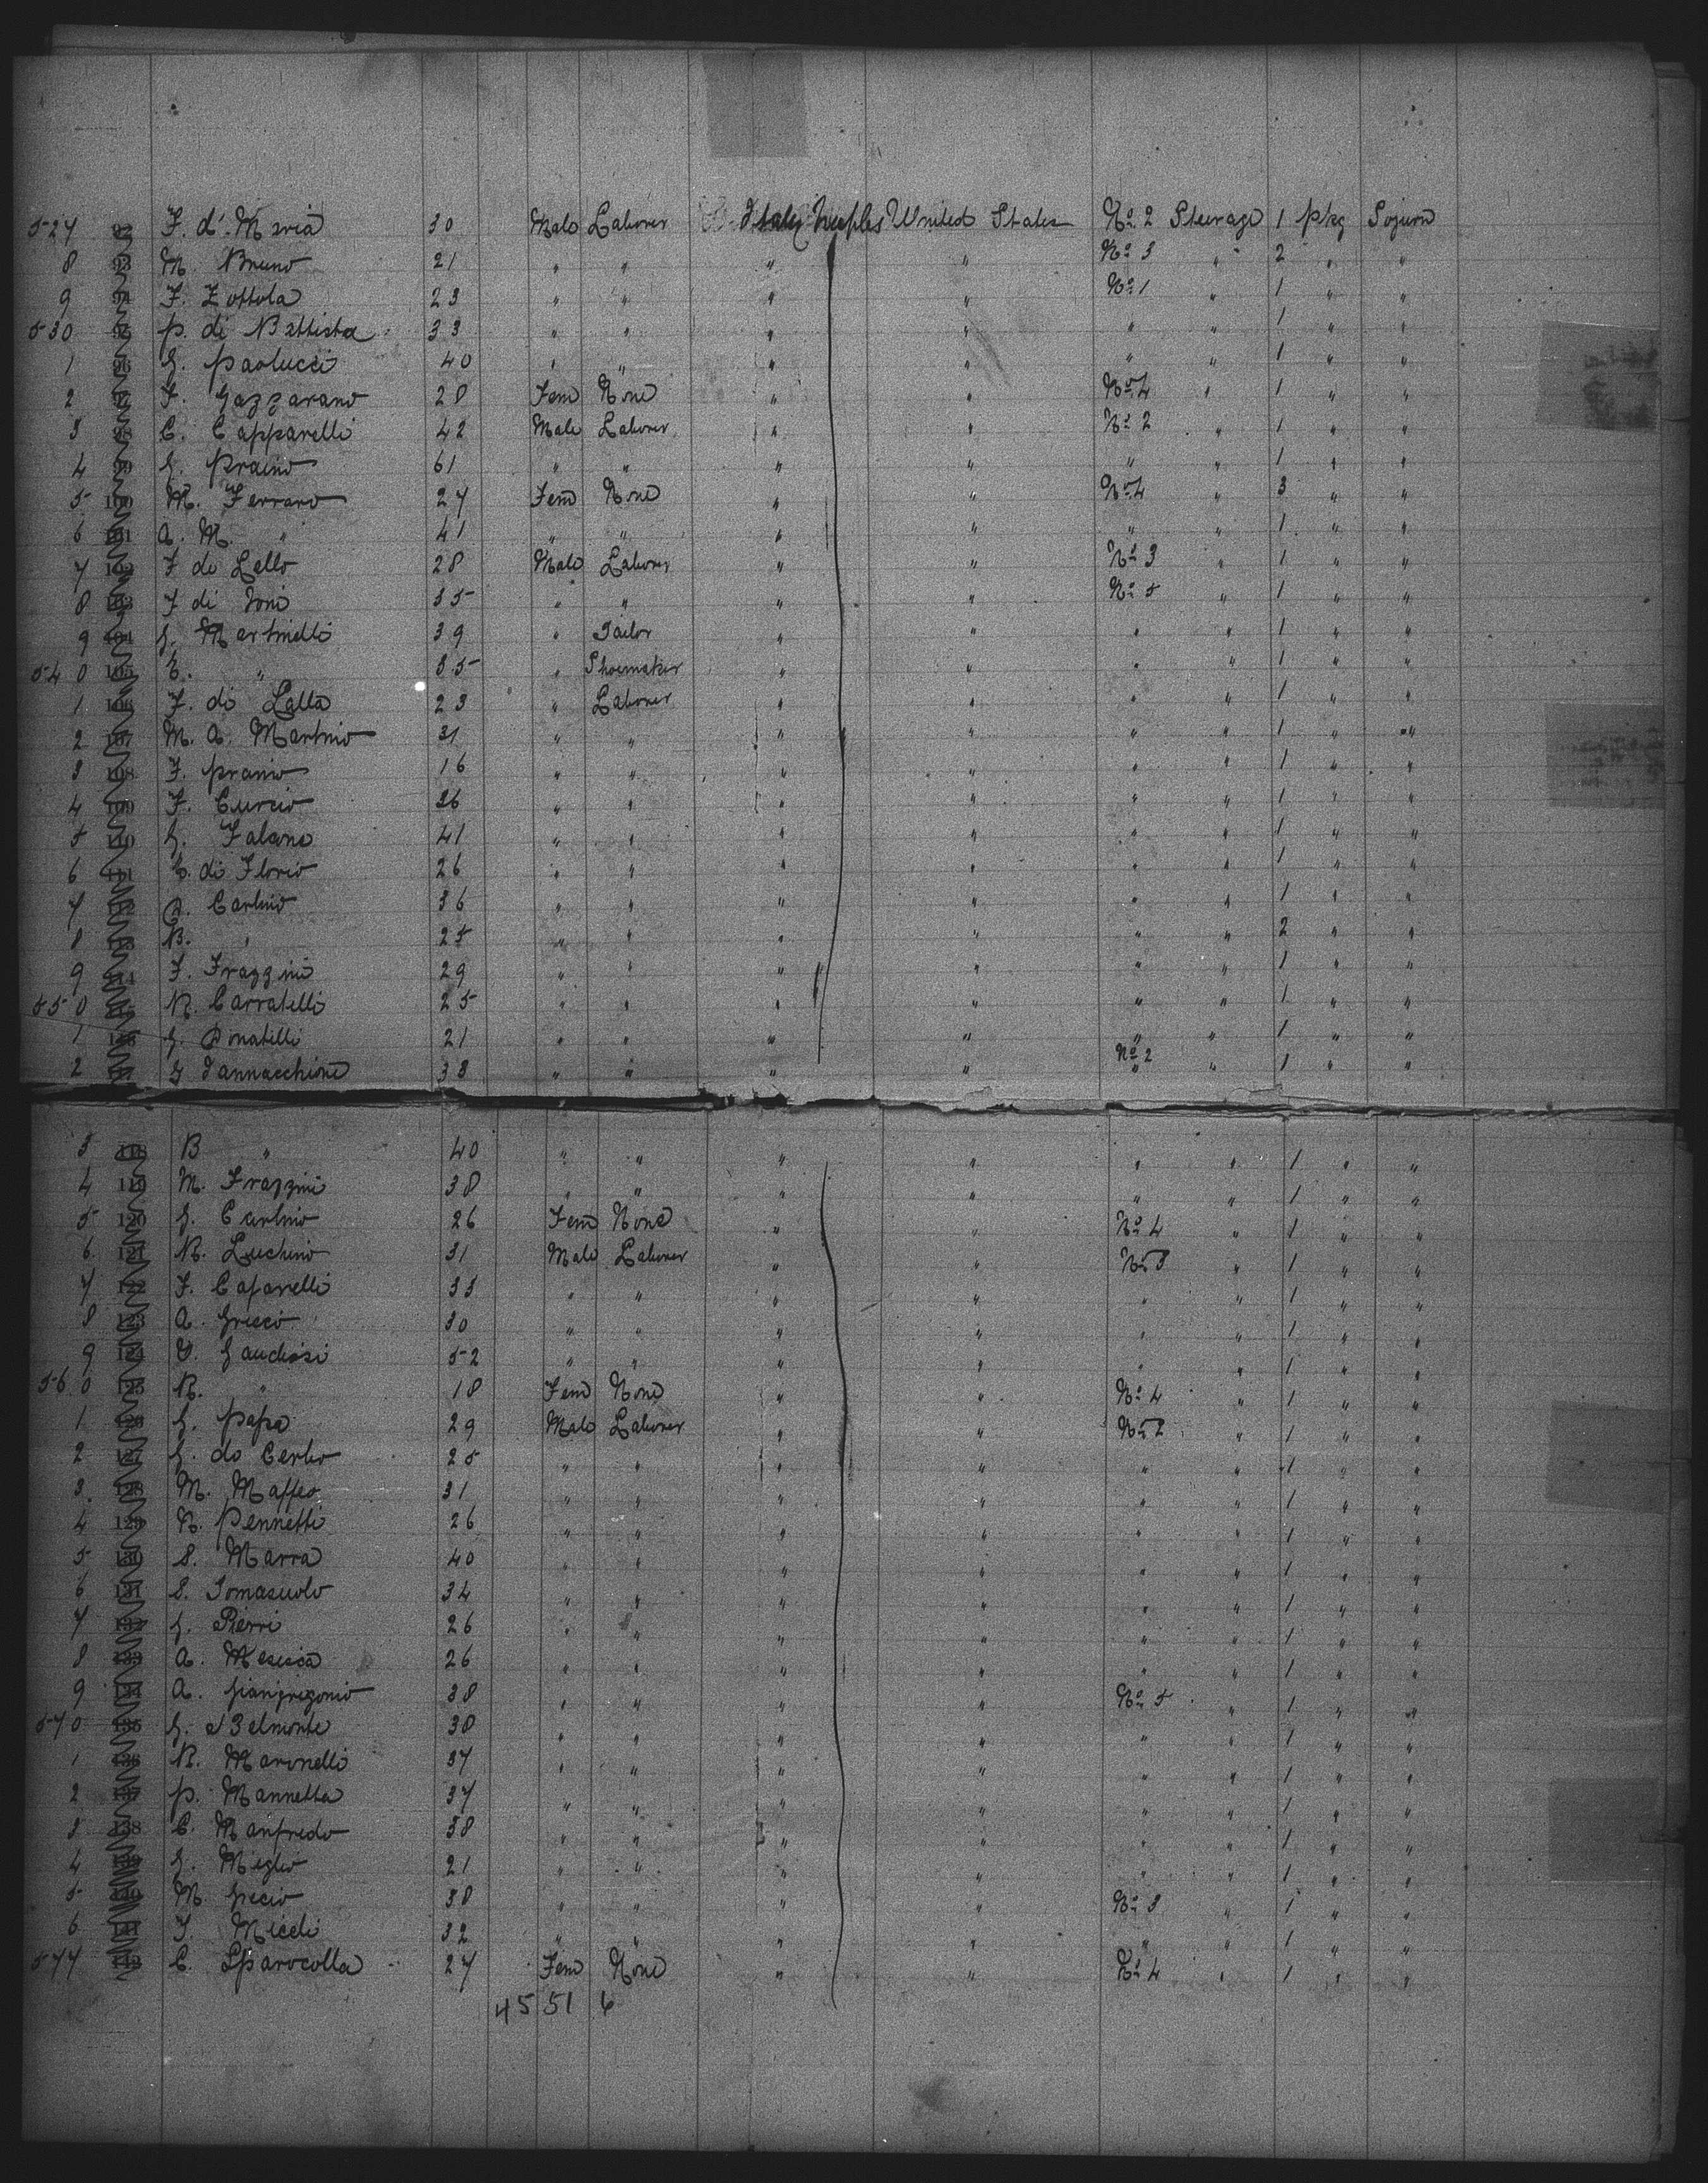 527 92 F. d'Maria 30 Male Laborer Italy Neaples United States No 2 Steerage 1 pkg Sojurn
8 93 M. Bruno 21 " " " " No 3 " 2 " "
9 94 F. Zottola 23 " " " " No 1 " 1 " "
530 95 P. di Battista 33 " " " " " " 1 " "
1 96 G. Paolucci 40 " " " " " " 1 " "
2 97 F. Gazzarano 28 Fem None " " No 4 " 1 " "
3 98 C. Capparelli 42 Male Laborer " " No 2 " 1 " "
4 99 G. Praino 61 " " " " " " 1 " "
5 100 M. Ferraro 27 Fem None " " No 4 " 3 " "
6 101 A. M. " 41 " " " " " " 1 " "
7 102 F de Lello 28 Male Laborer " " No 3 " 1 " "
8 103 F di Ioni 35 " " " " No 5 " 1 " "
9 104 G. Martinelli 39 " Tailor " " " " 1 " "
540 105 E. " 35 " Shoemaker " " " " 1 " "
1 106 F. di Lalla 23 " Laborer " " " " 1 " "
2 107 M. A. Martino 31 " " " " " " 1 " "
3 108 F. Praino 16 " " " " " " 1 " "
4 109 F. Curcio 26 " " " " " " 1 " "
5 110 G. Falcone 41 " " " " " " 1 " "
6 111 C. di Florio 26 " " " " " " 1 " "
7 112 A. Carlino 36 " " " " " " 1 " "
8 113 B. " 25 " " " " " " 2 " "
9 114 F. Frazzini 29 " " " " " " 1 " "
550 115 R. Carratelli 25 " " " " " " 1 " "
1 116 G. Donatelli 21 " " " " " " 1 " "
2 117 G Iannacchione 38 " " " " No 2 " 1 " "
3 118 B " 40 " " " " " " 1 " "
4 119 M. Frazzini 38 " " " " " " 1 " "
5 120 G. Carlino 26 Fem None " " No 4 " 1 " "
6 121 R. Luchino 31 Male Laborer " " No 3 " 1 " "
7 122 F. Caparelli 33 " " " " " " 1 " "
8 123 A. Grieco 30 " " " " " " 1 " "
9 124 V. Gaudiosi 52 " " " " " " 1 " "
560 125 R. " 18 Fem None " " No 4 " 1 " "
1 126 G. Papa 29 Male Laborer " " No 2 " 1 " "
2 127 G. do Cerbo 25 " " " " " " 1 " "
3 128 M. Maffeo 31 " " " " " " 1 " "
4 129 R. Pennetti 26 " " " " " " 1 " "
5 130 S. Marra 40 " " " " " " 1 " "
6 131 S. Tomasuolo 34 " " " " " " 1 " "
7 132 G. Pierri 26 " " " " " " 1 " "
8 133 A. Mesisca 26 " " " " " " 1 " "
9 134 A. Giangrigorio 38 " " " " No 5 " 1 " "
570 135 G. Belmonte 38 " " " " " " 1 " "
1 136 R. Maronelli 37 " " " " " " 1 " "
2 137 P. Mannetta 37 " " " " " " 1 " "
3 138 C. Manfredo 38 " " " " " " 1 " "
4 139 G. Meglio 21 " " " " " " 1 " "
5 140 M. Grecio 38 " " " " No 3 " 1 " "
6 141 F. Miceli 32 " " " " " " 1 " "
577 142 C. Sparocolla 27 Fem None " " No 4 " 1 " "
45 51 6